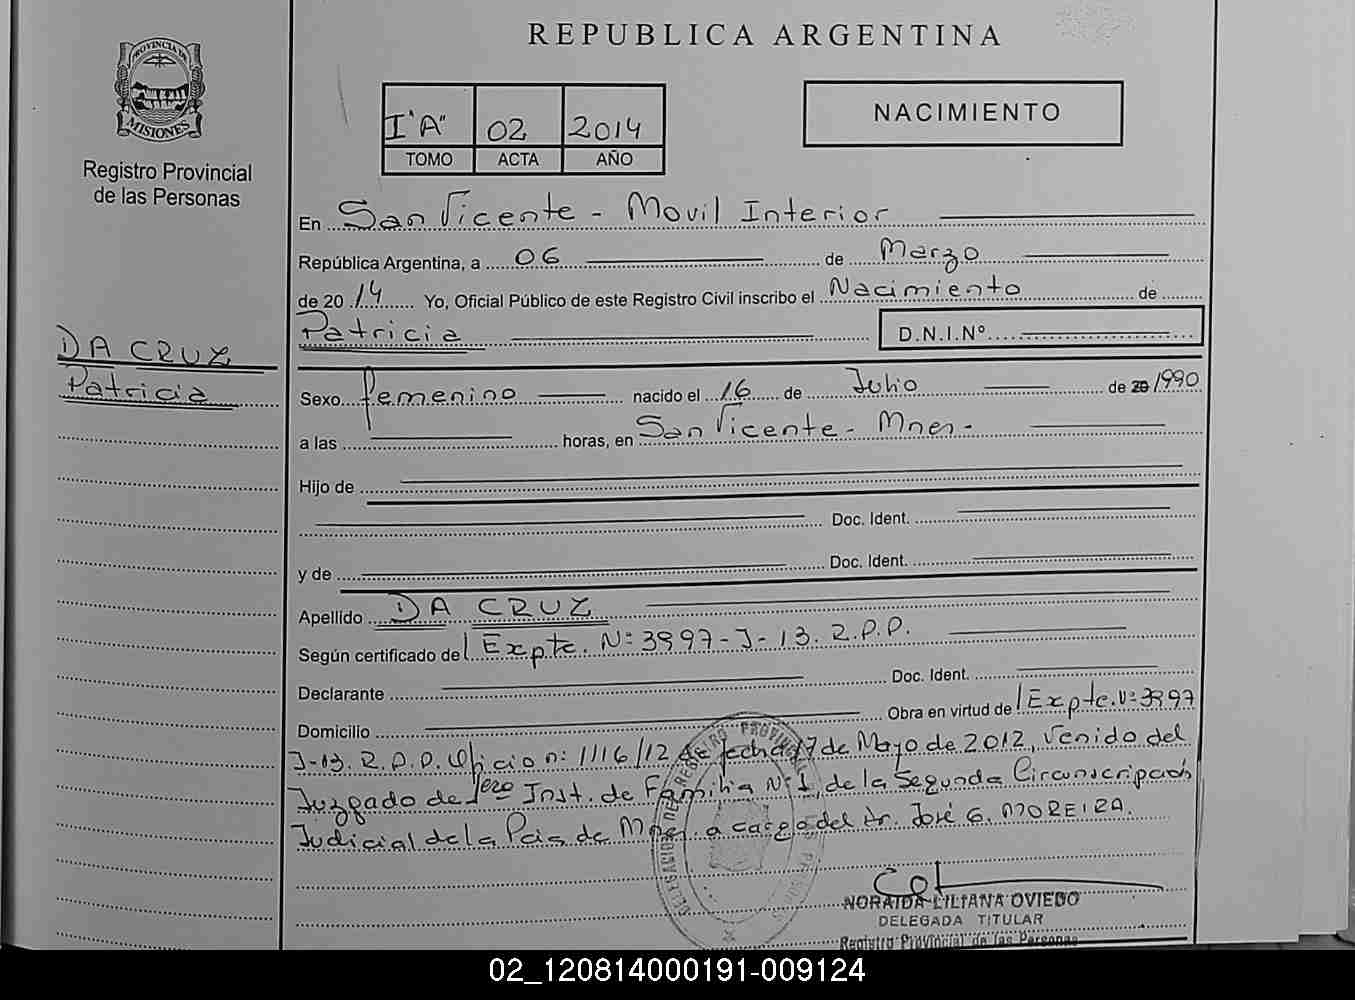 REPUBLICA ARGENTINA
PROVINCIA DE
MISIONES
Registro Provincial
de las Personas
I "A" 02 2014
TOMO ACTA AÑO
NACIMIENTO
En San Vicente - Movil Interior
República Argentina, a 06 de Marzo
de 20 14 Yo, Oficial Público de este Registro Civil inscribo el Nacimiento de
Patricia D.N.I.Nº
DA CRUZ
Patricia
Sexo femenino nacido el 16 de Julio de 20 1990
a las horas, en San Vicente - Mnes-
Hijo de
Doc. Ident.
y de Doc. Ident.
Apellido DA CRUZ
Según certificado del Expte. Nº 3997-J-13. R.P.P.
Declarante Doc. Ident.
Domicilio Obra en virtud del Expte. Nº 3997
J-13. R.P.P. Oficio nº 1116/12 de fecha 17 de Mayo de 2012, Venido del
Juzgado de 1ero Inst. de Familia Nº 1, de la Segunda Circunscripción
Judicial de la Pcia de Mnes. a cargo del Dr. José G. MOREIRA.
NORAIDA LILIANA OVIEDO
DELEGADA TITULAR
Registro Provincial de las Personas
02_120814000191-009124